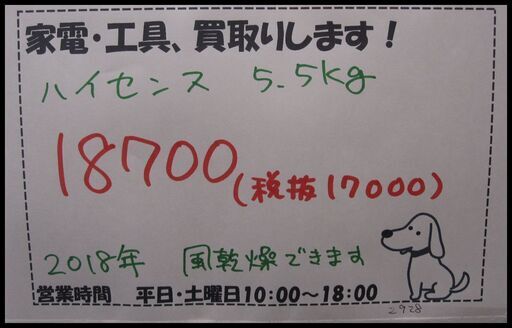 家電・工具、買取りします!
ハイセンス 5.5kg
18700(税抜17000)
2018年 風乾燥できます
営業時間 平日・土曜日10:00～18:00
2928